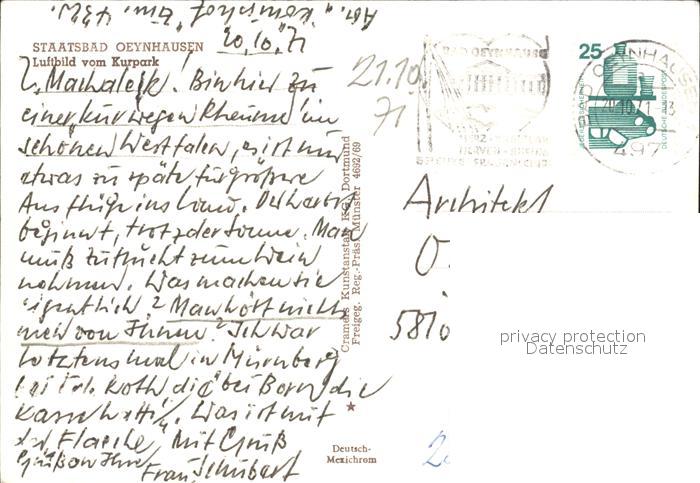 STAATSBAD OEYNHAUSEN
Luftbild vom Kurpark
20.10.71
L. Bin hier zu
einer Kur wegen Rheuma im
schönen Westfalen, es ist nur
etwas zu spät für größere
Ausflüge ins Land. Der Herbst
beginnt, trotz der Sonne. Man
muß Zuflucht zum Wein
nehmen. Was machen Sie
eigentlich? Man hört nichts
mehr von Ihnen? Ich war
letztens mal in Nürnberg
bei Frl. Roth die bei Born die
Kasse hatte. Was ist mit
der Flasche? Mit Gruß
Grüßen Ihre
Frau Schubert
21.10.
71
Cramers Kunstanstalt KG., Dortmund
Freigeg. Reg.-Präs. Münster 4692/69
Deutsch-
Mexichrom
25
DEUTSCHE BUNDESPOST
497
Architekt
O.
5810
privacy protection
Datenschutz